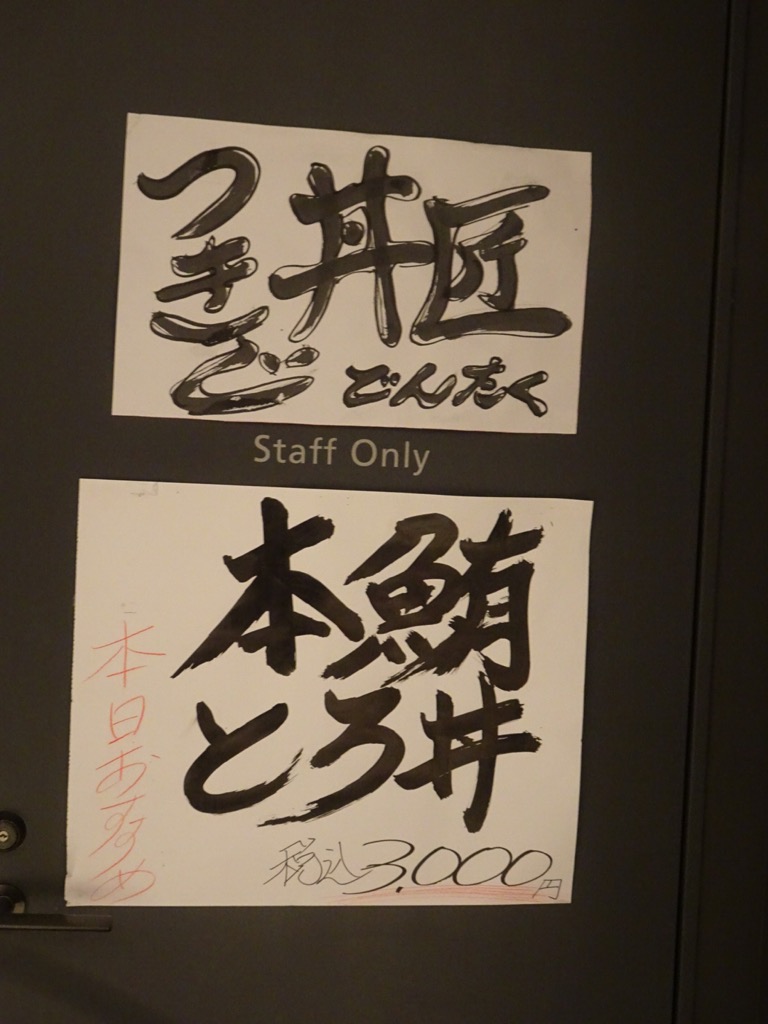 つきじ
丼匠
どんたく
Staff Only
本鮪
とろ丼
本日おすすめ
税込3,000円